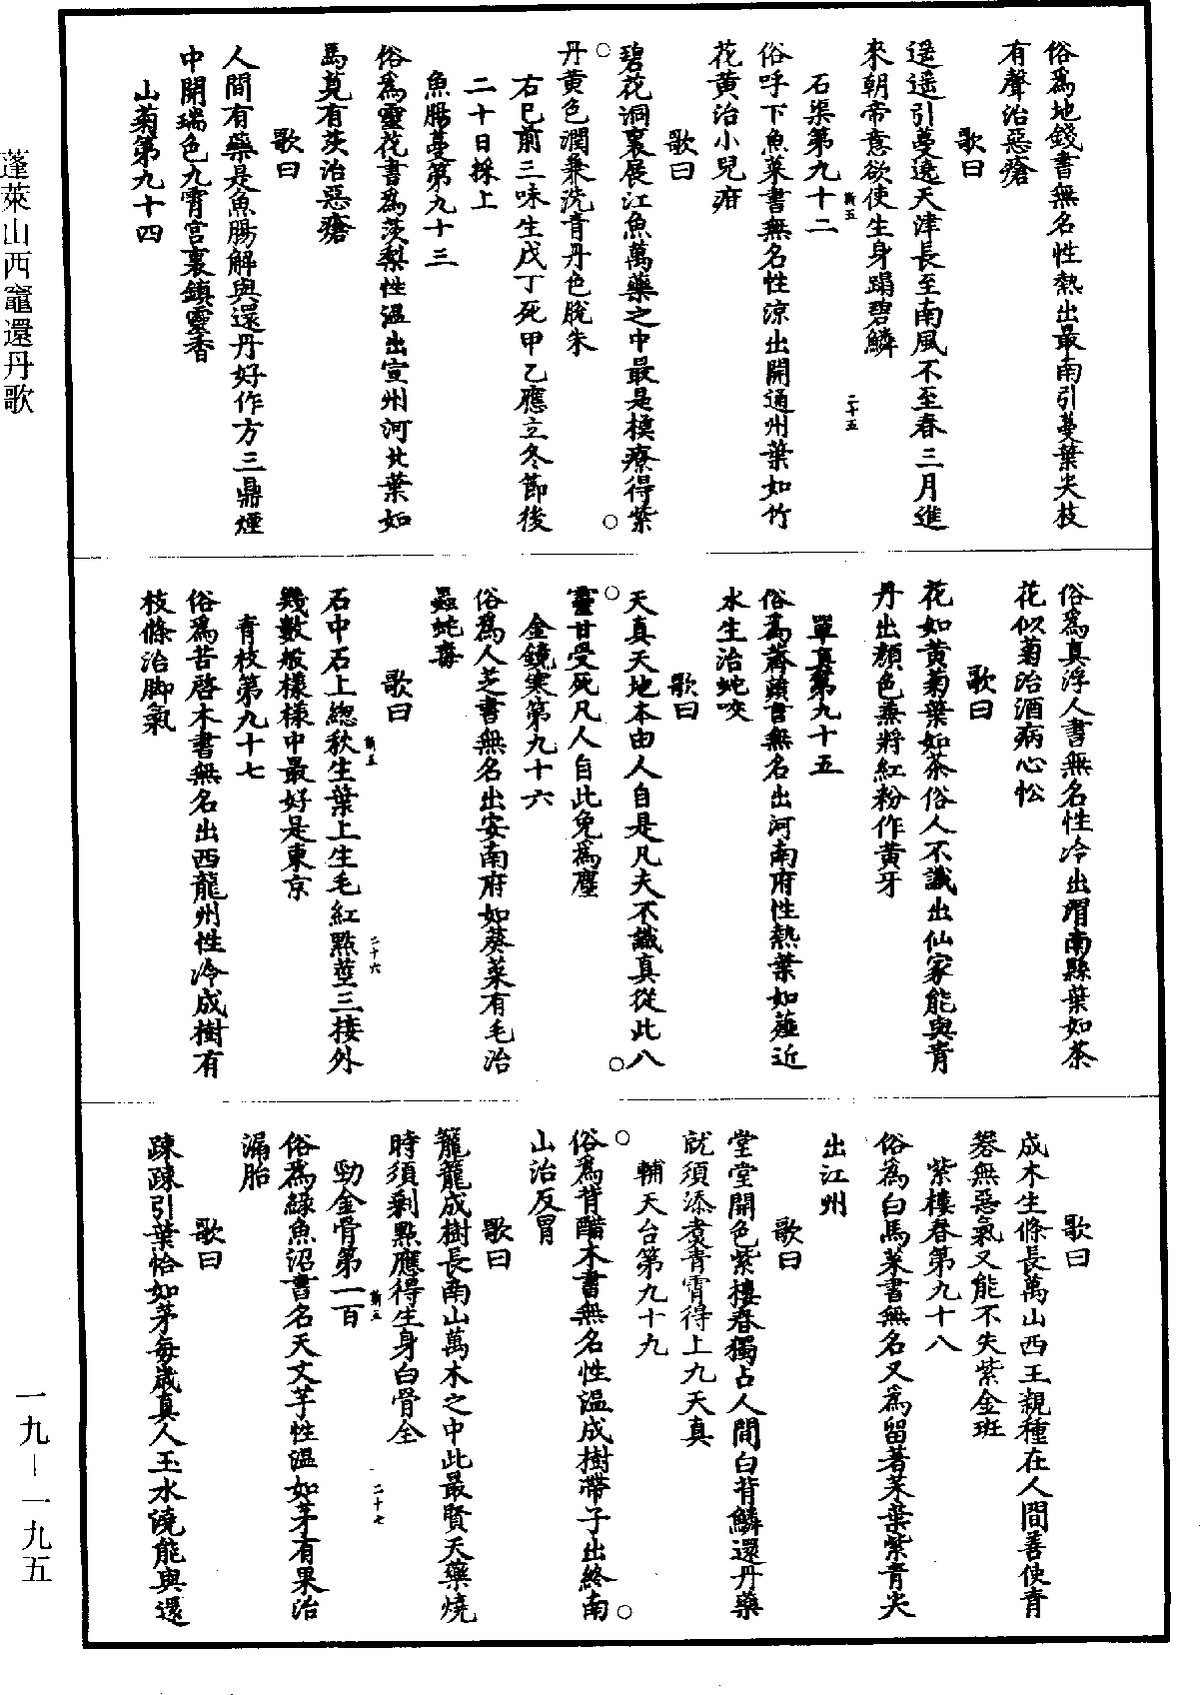 俗爲地錢書無名性熱出最南引蔓葉尖枝
有聲治惡瘡
歌曰
遥遥引蔓遶天津長至南風不至春三月進
來朝帝意欲使生身蹋碧鱗
石渠第九十二
俗呼下魚菜書無名性涼出開通州葉如竹
花黄治小兒疳
歌曰
碧花洞裏展江魚萬藥之中最是模療得紫
丹黄色潤兼洗青丹色脫朱
右巳前三味生戊丁死甲乙應立冬節後
二十日採上
魚腸蔓第九十三
俗爲靈花書爲茨梨性温出宣州河北葉如
馬莧有莢治惡瘡
歌曰
人間有藥是魚腸解與還丹好作方三鼎煙
中開瑞色九霄宫裏鎮靈香
山菊第九十四
俗爲真浮人書無名性冷出渭南縣葉如茶
花似菊治酒病心忪
歌曰
花如黄菊葉如茶俗人不識出仙家能與青
丹出顏色兼將紅粉作黄牙
單真第九十五
俗爲薺頭書無名出河南府性熱葉如薤近
水生治蛇咬
歌曰
天真天地本由人自是凡夫不識真從此八
靈甘受死凡人自此免爲塵
金鏡寒第九十六
俗爲人芝書無名出安南府如葵菜有毛治
蟲蛇毒
歌曰
石中石上總秋生葉上生毛紅點莖三接外
幾數般樣樣中最好是東京
青枝第九十七
俗爲苦啓木書無名出西龍州性冷成樹有
枝條治脚氣
歌曰
成木生條長萬山西王親種在人間善使青
碁無惡氣又能不失紫金班
紫樓春第九十八
俗爲白馬菜書無名又爲留著茉葉紫青尖
出江州
歌曰
堂堂開色紫樓春獨占人間白背鱗還丹藥
就須添煑青霄得上九天真
輔天台第九十九
俗爲背醋木書無名性温成樹帶子出終南
山治反胃
歌曰
籠籠成樹長南山萬木之中此最賢天藥燒
時須剩點應得生身白骨全
勁金骨第一百
俗爲緑魚沼書名天文芋性温如茅有果治
漏胎
歌曰
踈踈引葉恰如茅每歲真人玉水澆能與還
蓬萊山西竈還丹歌
一九－一九五